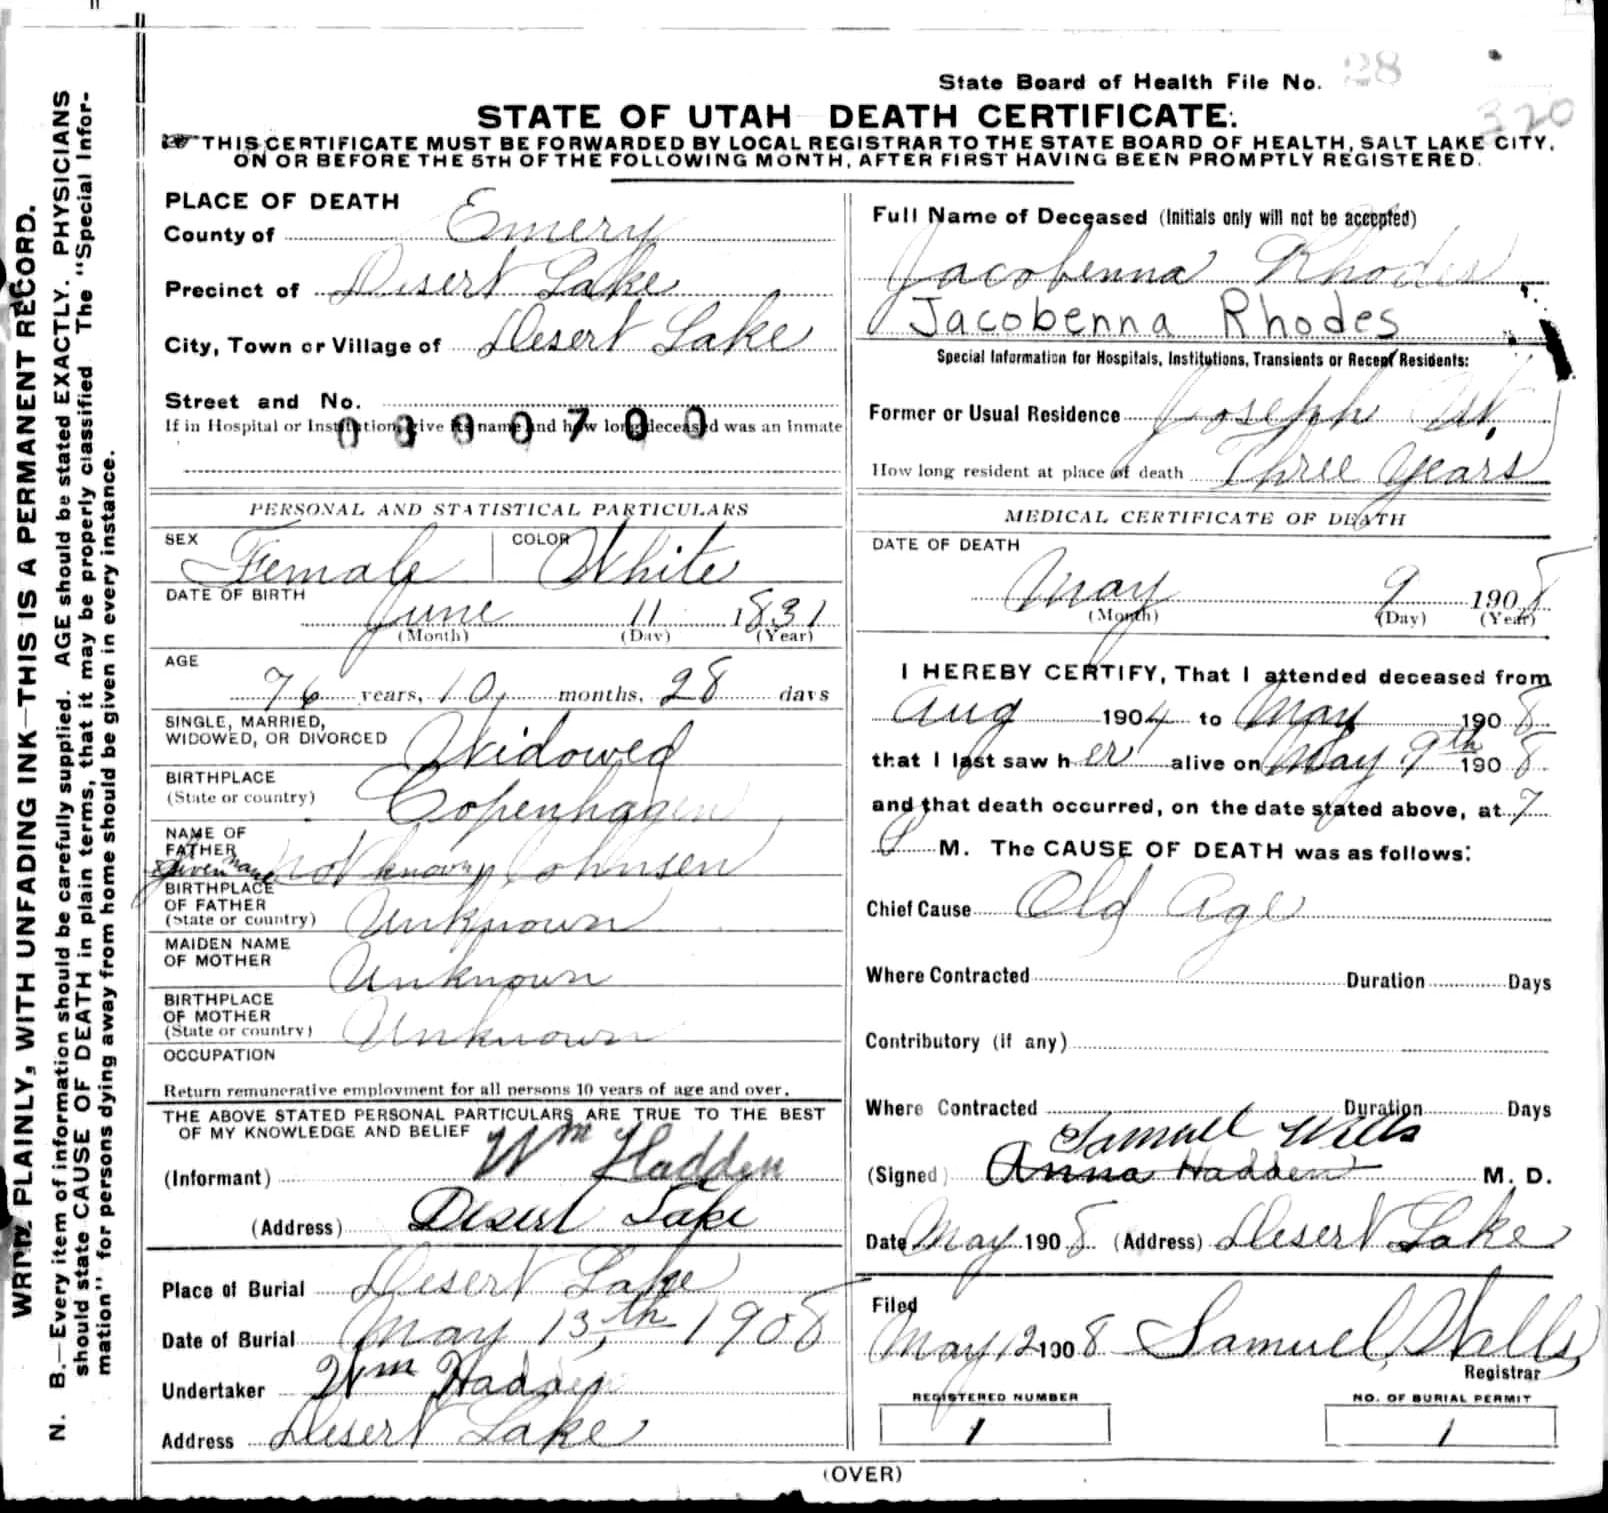 WRITE PLAINLY, WITH UNFADING INK—THIS IS A PERMANENT RECORD.
N. B.—Every item of information should be carefully supplied. AGE should be stated EXACTLY. PHYSICIANS
should state CAUSE OF DEATH in plain terms, that it may be properly classified The "Special Infor-
mation" for persons dying away from home should be given in every instance.
State Board of Health File No. 28
320
STATE OF UTAH DEATH CERTIFICATE.
THIS CERTIFICATE MUST BE FORWARDED BY LOCAL REGISTRAR TO THE STATE BOARD OF HEALTH, SALT LAKE CITY,
ON OR BEFORE THE 5TH OF THE FOLLOWING MONTH, AFTER FIRST HAVING BEEN PROMPTLY REGISTERED.
PLACE OF DEATH
County of Emery
Precinct of Desert Lake
City, Town or Village of Desert Lake
Street and No.
If in Hospital or Institution, give its name and how long deceased was an inmate
PERSONAL AND STATISTICAL PARTICULARS
SEX Female COLOR White
DATE OF BIRTH
June 11 1831
(Month) (Day) (Year)
AGE
76 years, 10 months, 28 days
SINGLE, MARRIED,
WIDOWED, OR DIVORCED Widowed
BIRTHPLACE
(State or country) Copenhagen
NAME OF
FATHER
given name Not known Johnsen
BIRTHPLACE
OF FATHER
(State or country) Unknown
MAIDEN NAME
OF MOTHER Unknown
BIRTHPLACE
OF MOTHER
(State or country) Unknown
OCCUPATION
Return remunerative employment for all persons 10 years of age and over.
THE ABOVE STATED PERSONAL PARTICULARS ARE TRUE TO THE BEST
OF MY KNOWLEDGE AND BELIEF
(Informant) Wm Hadden
(Address) Desert Lake
Place of Burial Desert Lake
Date of Burial May 13th 1908
Undertaker Wm Hadden
Address Desert Lake
Full Name of Deceased (Initials only will not be accepted)
Jacobenna Rhodes
Jacobenna Rhodes
Special Information for Hospitals, Institutions, Transients or Recent Residents:
Former or Usual Residence Joseph Ut.
How long resident at place of death Three Years
MEDICAL CERTIFICATE OF DEATH
DATE OF DEATH
May 9 1908
(Month) (Day) (Year)
I HEREBY CERTIFY, That I attended deceased from
Aug 1904 to May 1908
that I last saw her alive on May 9th 1908
and that death occurred, on the date stated above, at 7
P M. The CAUSE OF DEATH was as follows:
Chief Cause Old Age
Where Contracted Duration Days
Contributory (if any)
Where Contracted Duration Days
Samuel Wells
(Signed) Anna Hadden M. D.
Date May 1908 (Address) Desert Lake
Filed
May 12 1908 Samuel Wells
Registrar
REGISTERED NUMBER
1
NO. OF BURIAL PERMIT
1
(OVER)